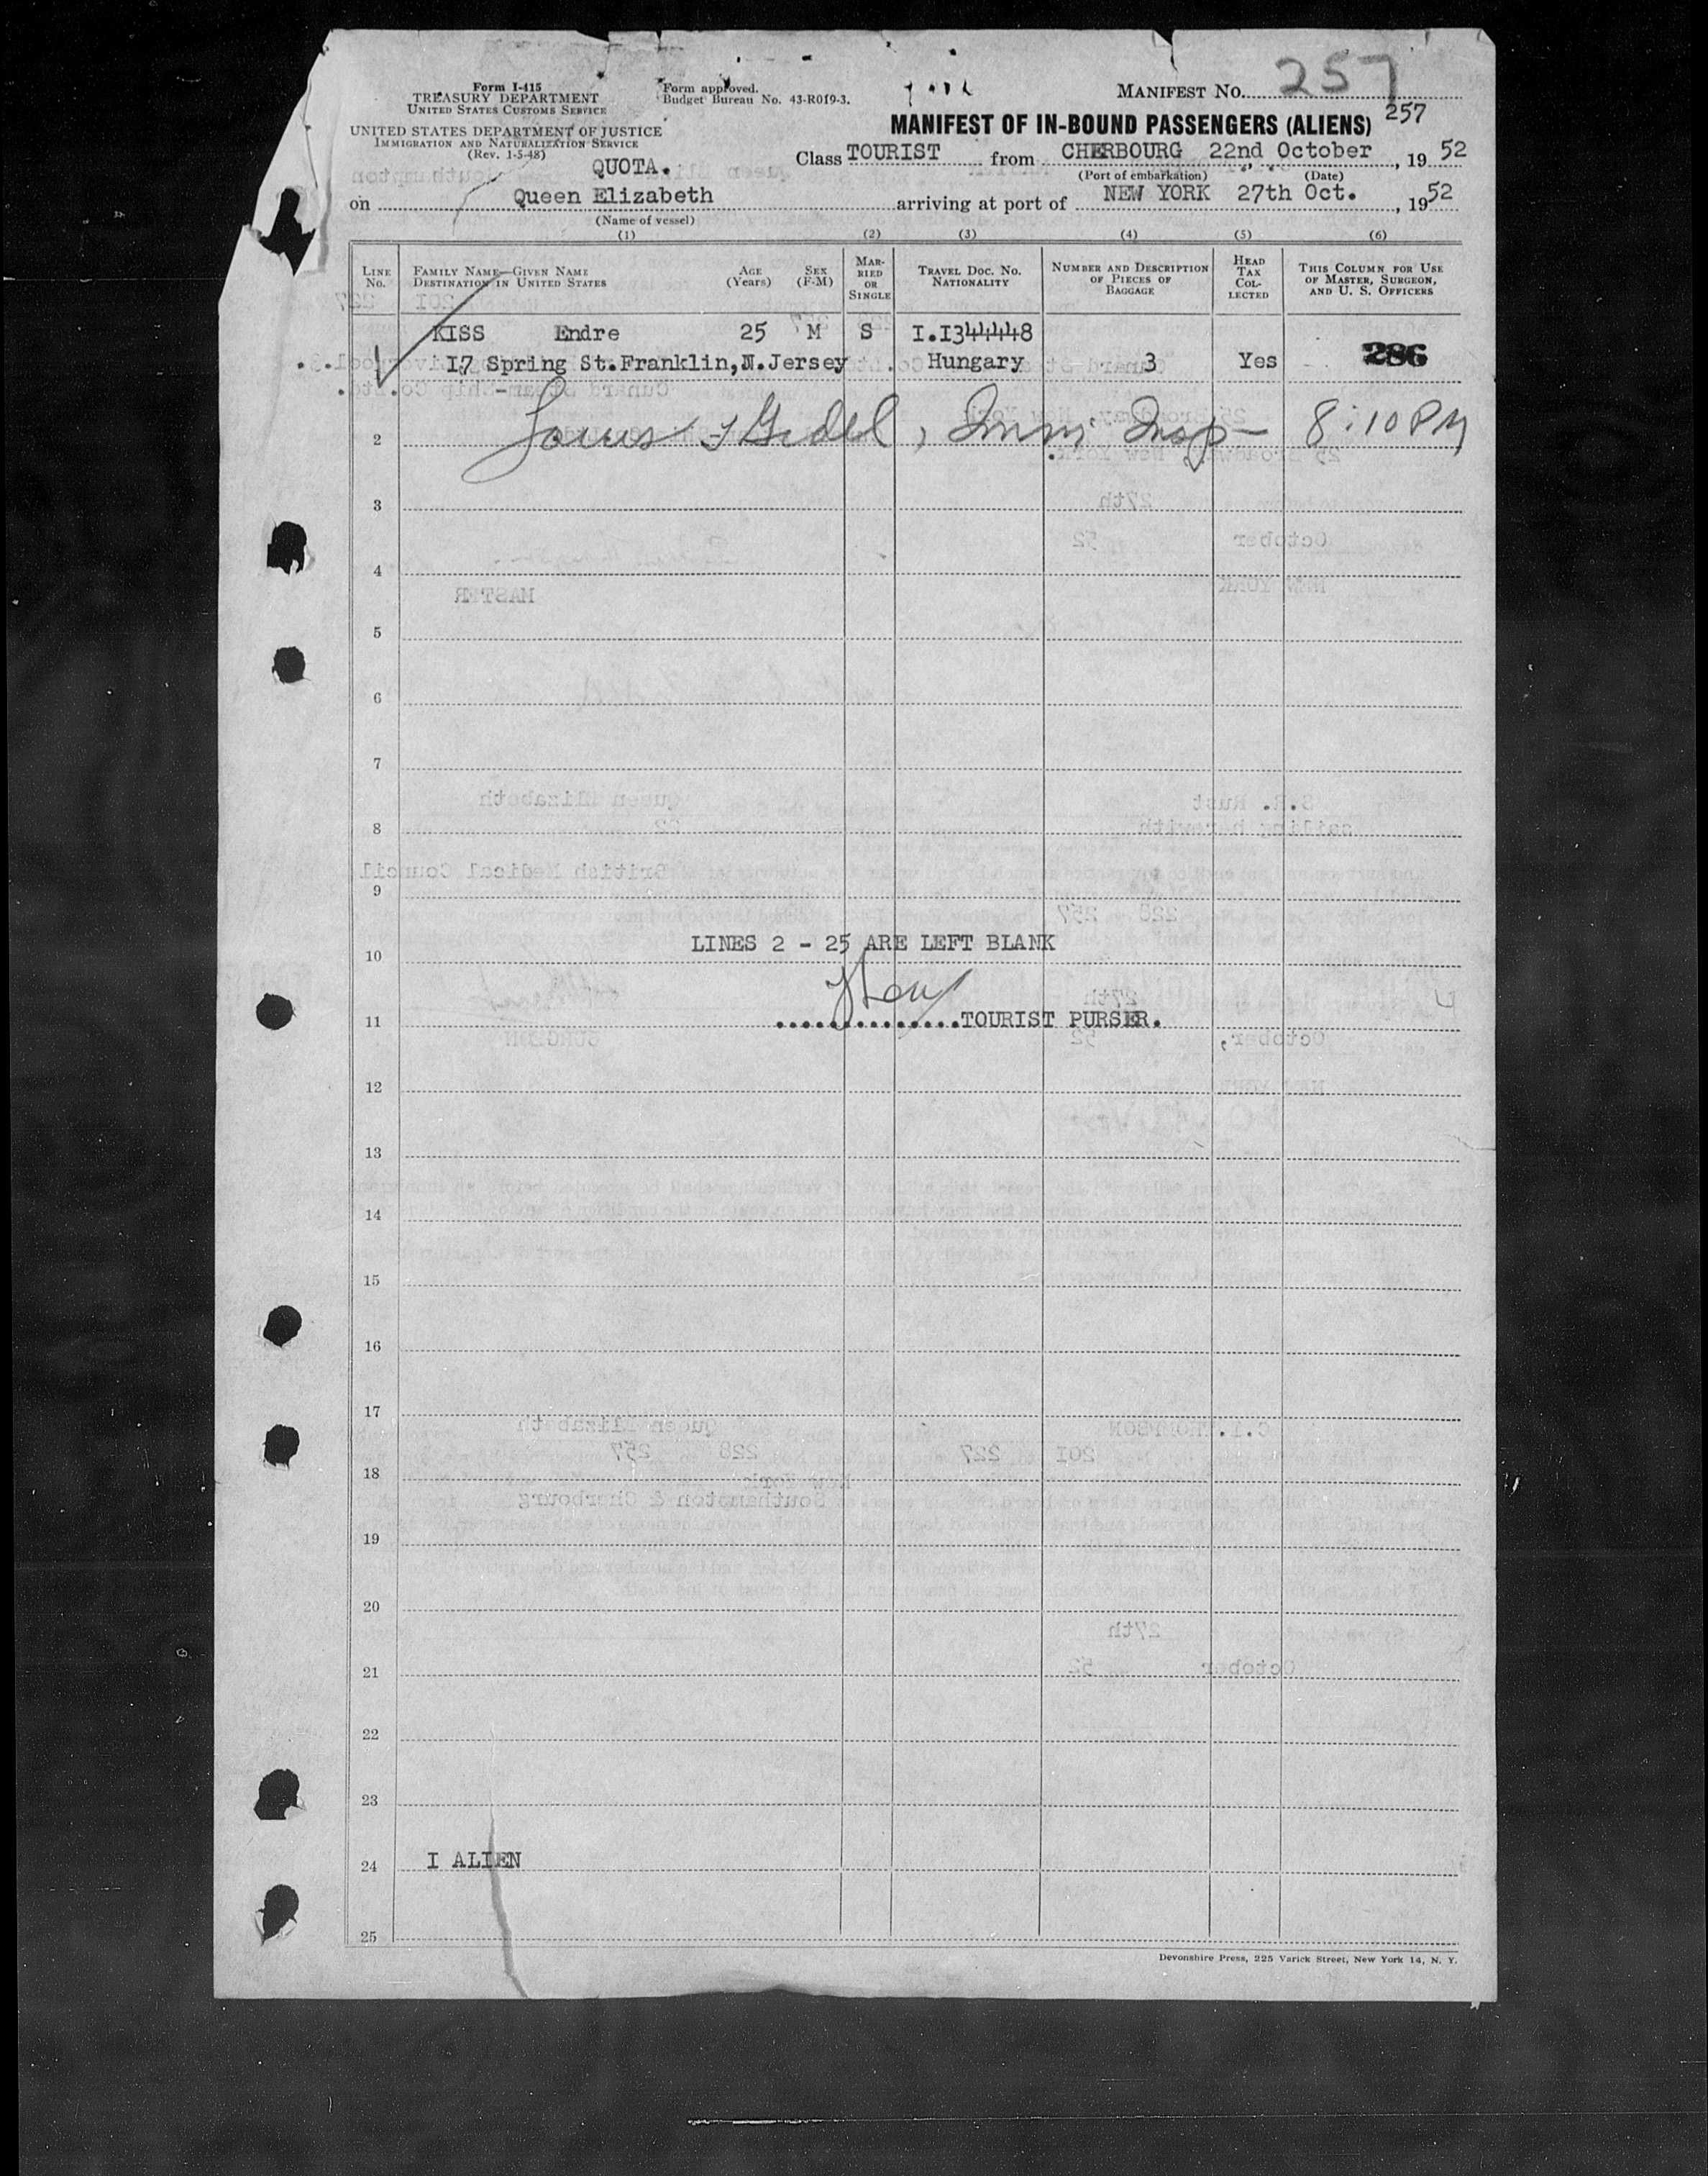 Form I-415
TREASURY DEPARTMENT
UNITED STATES CUSTOMS SERVICE
UNITED STATES DEPARTMENT OF JUSTICE
IMMIGRATION AND NATURALIZATION SERVICE
(Rev. 1-5-48)
Form approved.
Budget Bureau No. 43-R019-3.
MANIFEST NO. 257
257
MANIFEST OF IN-BOUND PASSENGERS (ALIENS)
QUOTA.
Class TOURIST from CHERBOURG 22nd October, 19 52
(Port of embarkation) (Date)
on Queen Elizabeth arriving at port of NEW YORK 27th Oct., 19 52
(Name of vessel)
(1) (2) (3) (4) (5) (6)
LINE NO.
FAMILY NAME—GIVEN NAME
DESTINATION IN UNITED STATES
AGE (Years)
SEX (F-M)
MARRIED OR SINGLE
TRAVEL DOC. NO. NATIONALITY
NUMBER AND DESCRIPTION OF PIECES OF BAGGAGE
HEAD TAX COLLECTED
THIS COLUMN FOR USE OF MASTER, SURGEON, AND U. S. OFFICERS
KISS Endre 25 M S I.I344448
I7 Spring St.Franklin,N.Jersey Hungary 3 Yes 286
2 Immi Insp 8:10 PM
3
4
5
6
7
8
9
LINES 2 - 25 ARE LEFT BLANK
10
11 ...............TOURIST PURSER.
12
13
14
15
16
17
18
19
20
21
22
23
24 I ALIEN
25
Devonshire Press, 225 Varick Street, New York 14, N. Y.